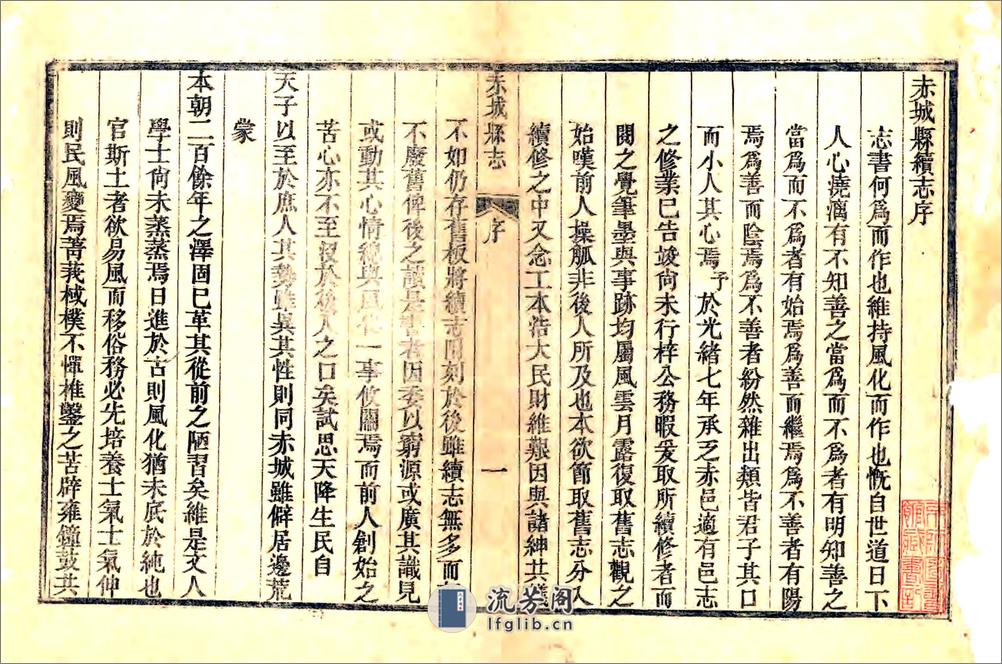 赤城縣續志序
志書何爲而作也維持風化而作也慨自世道日下
人心澆漓有不知善之當爲而不爲者有明知善之
當爲而不爲者有始焉爲善而繼焉爲不善者有陽
焉爲善而陰焉爲不善者紛然雜出類皆君子其口
而小人其心焉予於光緒七年承乏赤邑適有邑志
之修業已告竣尙未行梓公務暇爰取所續修者而
閱之覺筆墨與事跡均屬風雲月露復取舊志觀之
始嘆前人操觚非後人所及也本欲節取舊志分入
續修之中又念工本浩大民財維艱因與諸紳共議
不如仍存舊板將續志刻於後雖續志無多而
不廢舊俾後之讀是書者因委以窮源或廣其識見
或動其心情總與風一事攸關焉而前人創始之
苦心亦不至沒於後人之口矣試思天降生民自
天子以至於庶人其勢雖異其性則同赤城雖僻居邊荒
蒙
本朝二百餘年之澤固已革其從前之陋習矣維是文人
學士尙未蒸蒸焉日進於古則風化猶未底於純也
官斯土者欲易風而移俗務必先培養士氣士氣伸
則民風變焉菁莪棫樸不憚椎鑿之苦辟雍鐘鼓共
赤城縣志
序
一
流芳阁
lfglib.cn